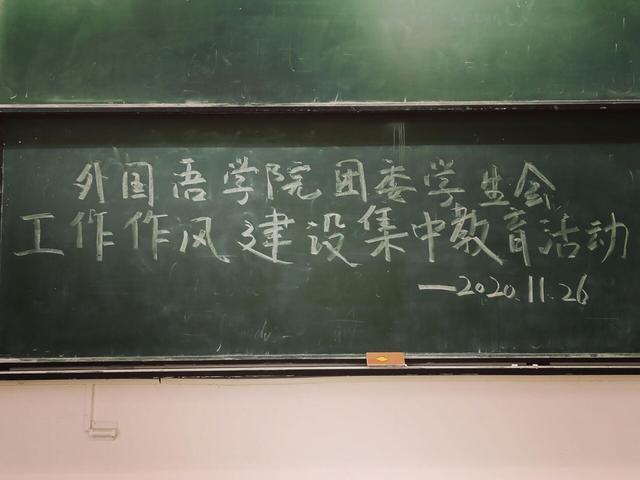 外国语学院团委学生会
工作作风建设集中教育活动
—2020.11.26